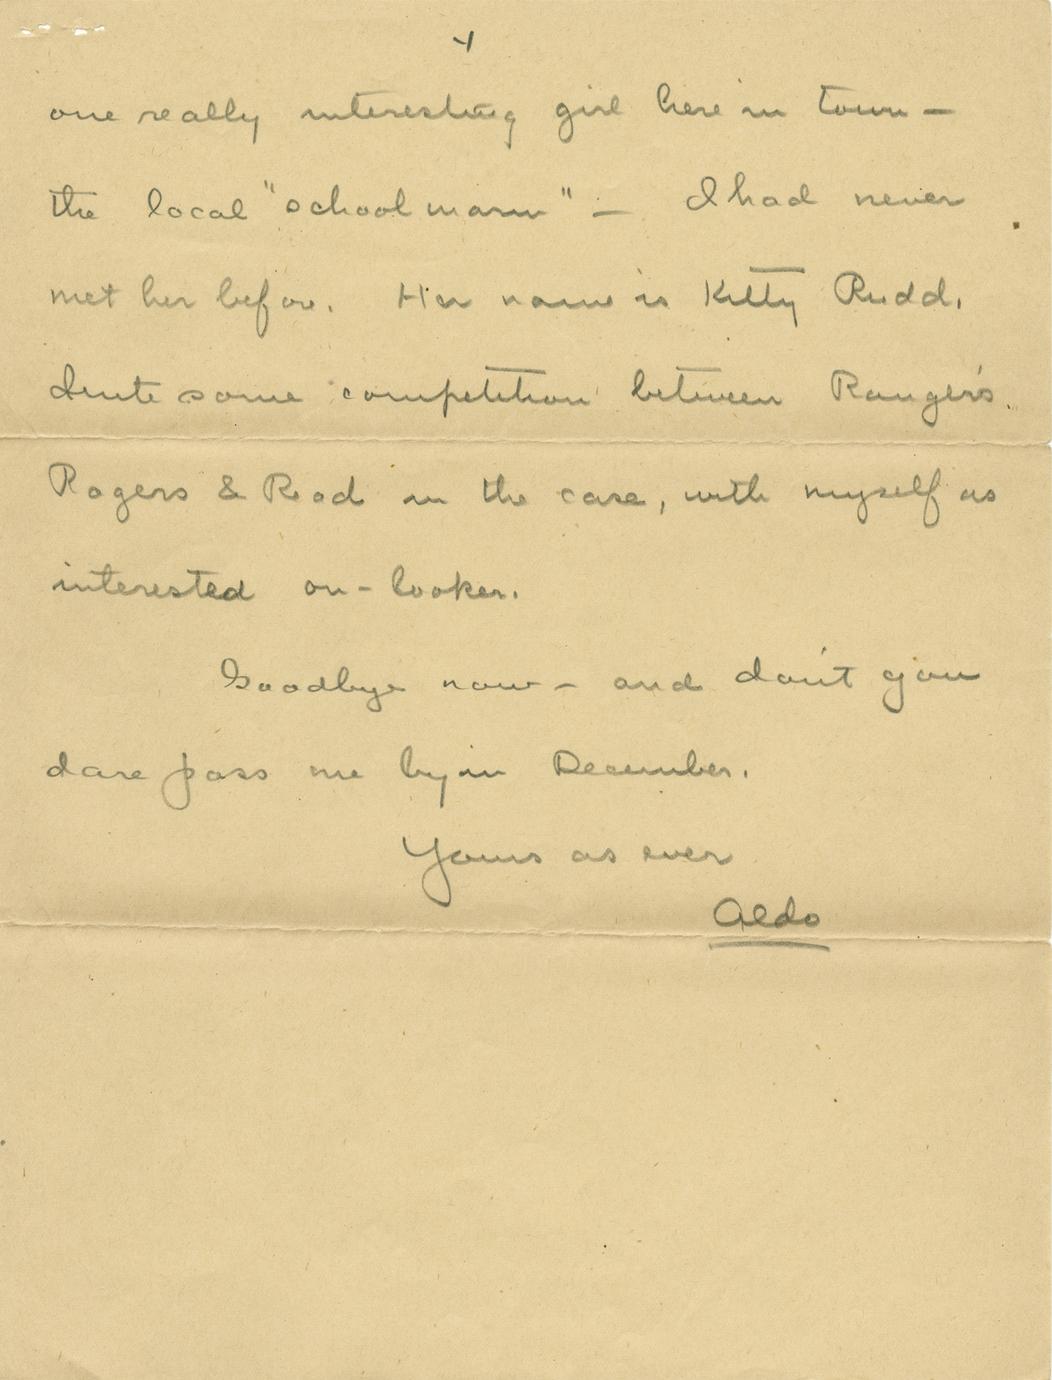 4
one really interesting girl here in town —
the local "school marm" — I had never
met her before. Her name is Kitty Rudd.
Quite some competition between Rangers
Rogers & Rod in the case, with myself as
interested on-looker.
Goodbye now — and don't you
dare pass me by in December.
Yours as ever
Aldo